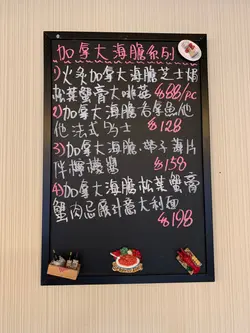 加拿大海膽系列
1) 火炙加拿大海膽芝士焗
松葉蟹膏大啡菇 $88/pc
2) 加拿大海膽吞拿魚他
他法式多士 $128
3) 加拿大海膽、帶子薄片
伴檸檬醬 $158
4) 加拿大海膽松葉蟹膏
蟹肉忌廉汁意大利面 $198